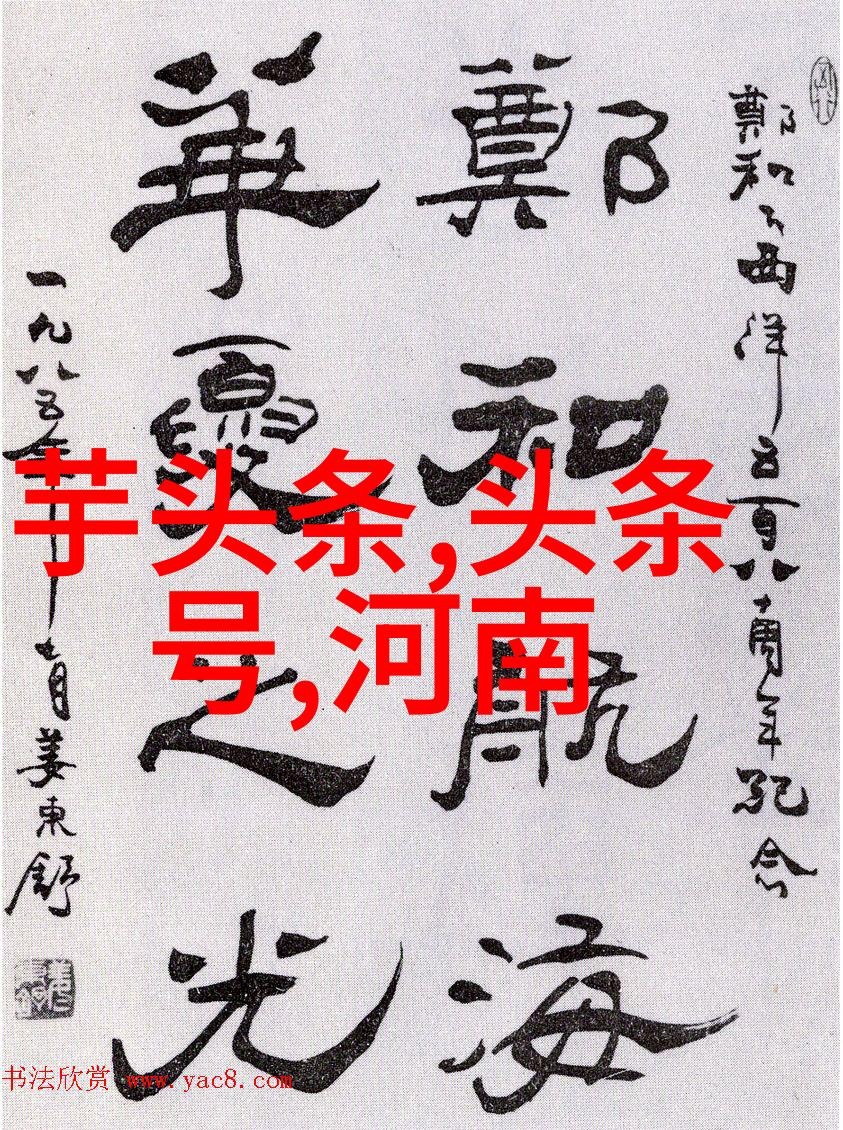 鄭和下西洋五百八十周年紀念
鄭和航海
華夏之光
一九八五年
月姜東舒
芋头条,头条
号,河南
书法欣赏 www.yac8.com